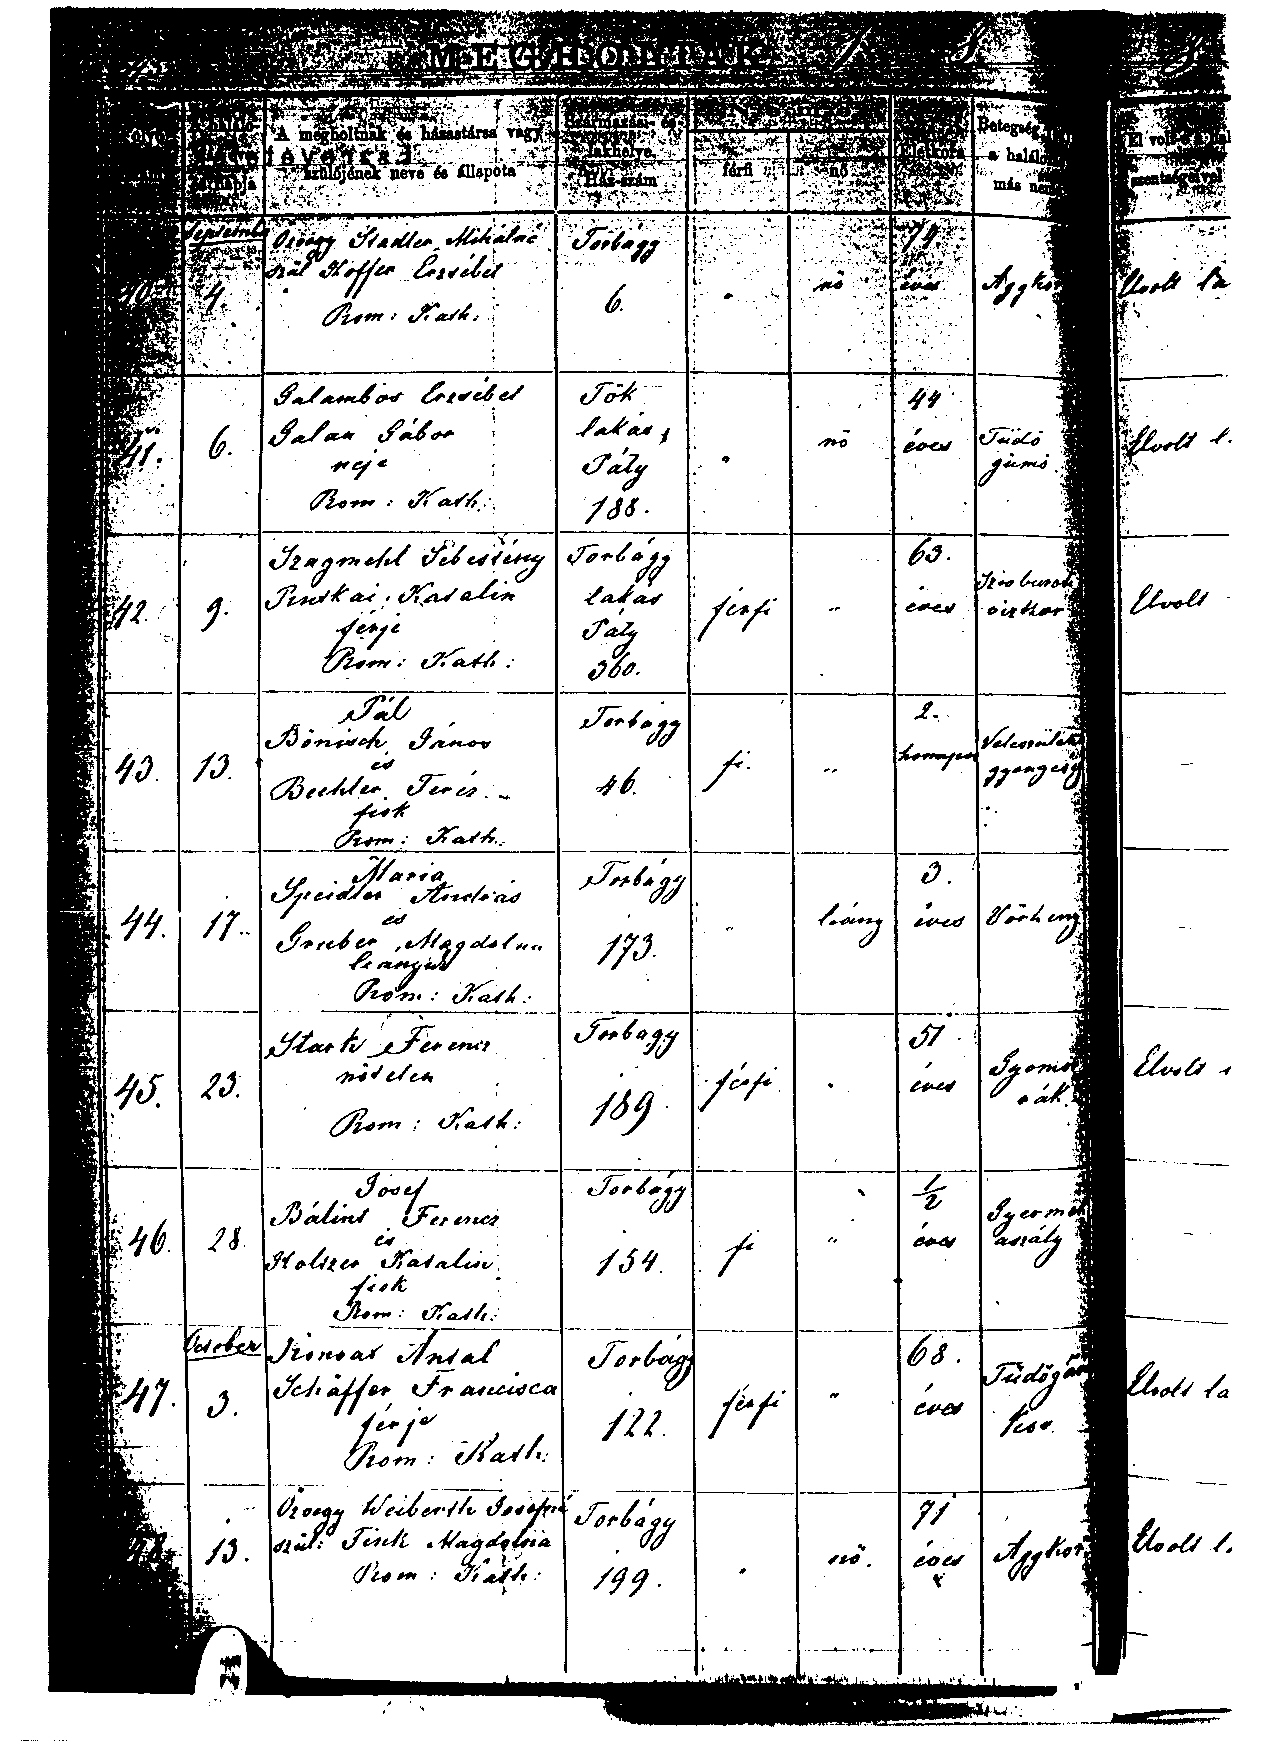 MEGHOLTAK. 1 8 8
A megholtnak és házastársa vagy
szülőjének neve és állapota
lakhelye.
Ház-szám
férfi
nő
Betegség
a halál
más nem
El volt-e
szentségeivel
September
4.
Özvegy Stadler Mihálné
szül Hoffer Erzsébet
Rom: Kath:
Torbágy
6.
nő
79.
éves
Aggkor
Elvolt la
41.
6.
Galambos Erzsébet
Galan Gábor
neje
Rom: Kath:
Tök
lakás,
Pály
188.
nő
44
éves
Tüdő
gümő
Elvolt l.
42.
9.
Szagmehl Sebestény
Katalin
férje
Rom: Kath:
Torbágy
lakás
Pály
360.
férfi
"
63.
éves
Elvolt
43.
13.
Pál
Bönisch János
és
Bechler Teréz
fiok
Rom: Kath:
Torbágy
46.
fi.
"
2.
honapos
Veleszületett
gyengeség
44.
17.
Maria
Speidler András
és
Gruber Magdolna
leanyuk
Rom: Kath:
Torbágy
173.
"
leány
3.
éves
Vörheny
45.
23.
Stark Ferencz
nőtelen
Rom: Kath:
Torbagy
189.
férfi
51
éves
Gyomor
rák.
Elvolt
46.
28
Josef
Bálint Ferencz
és
Holszer Katalin
fiok
Rom: Kath:
Torbágy
154.
fi
"
1/2
éves
Gyermek
aszály
October
47.
3.
Antal
Schäffer Francisca
férje
Rom: Kath:
Torbágy
122.
férfi
"
68.
éves
Elvolt la
48.
13.
Özvegy Weiberth Josefné
szül: Fink Magdolna
Rom: Kath:
Torbágy
199.
nő.
71
éves
Aggkor
Elvolt l.